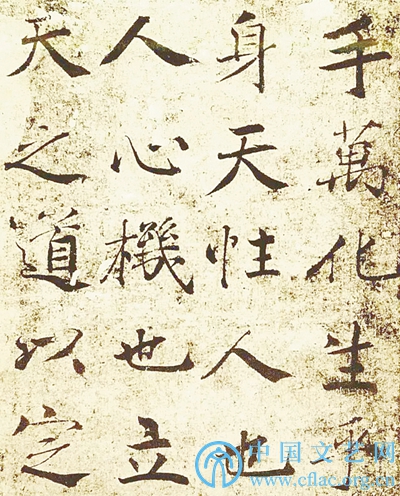 手萬化生乎
身天性人也
人心機也立
天之道以定
中国文艺网
www.cflac.org.cn